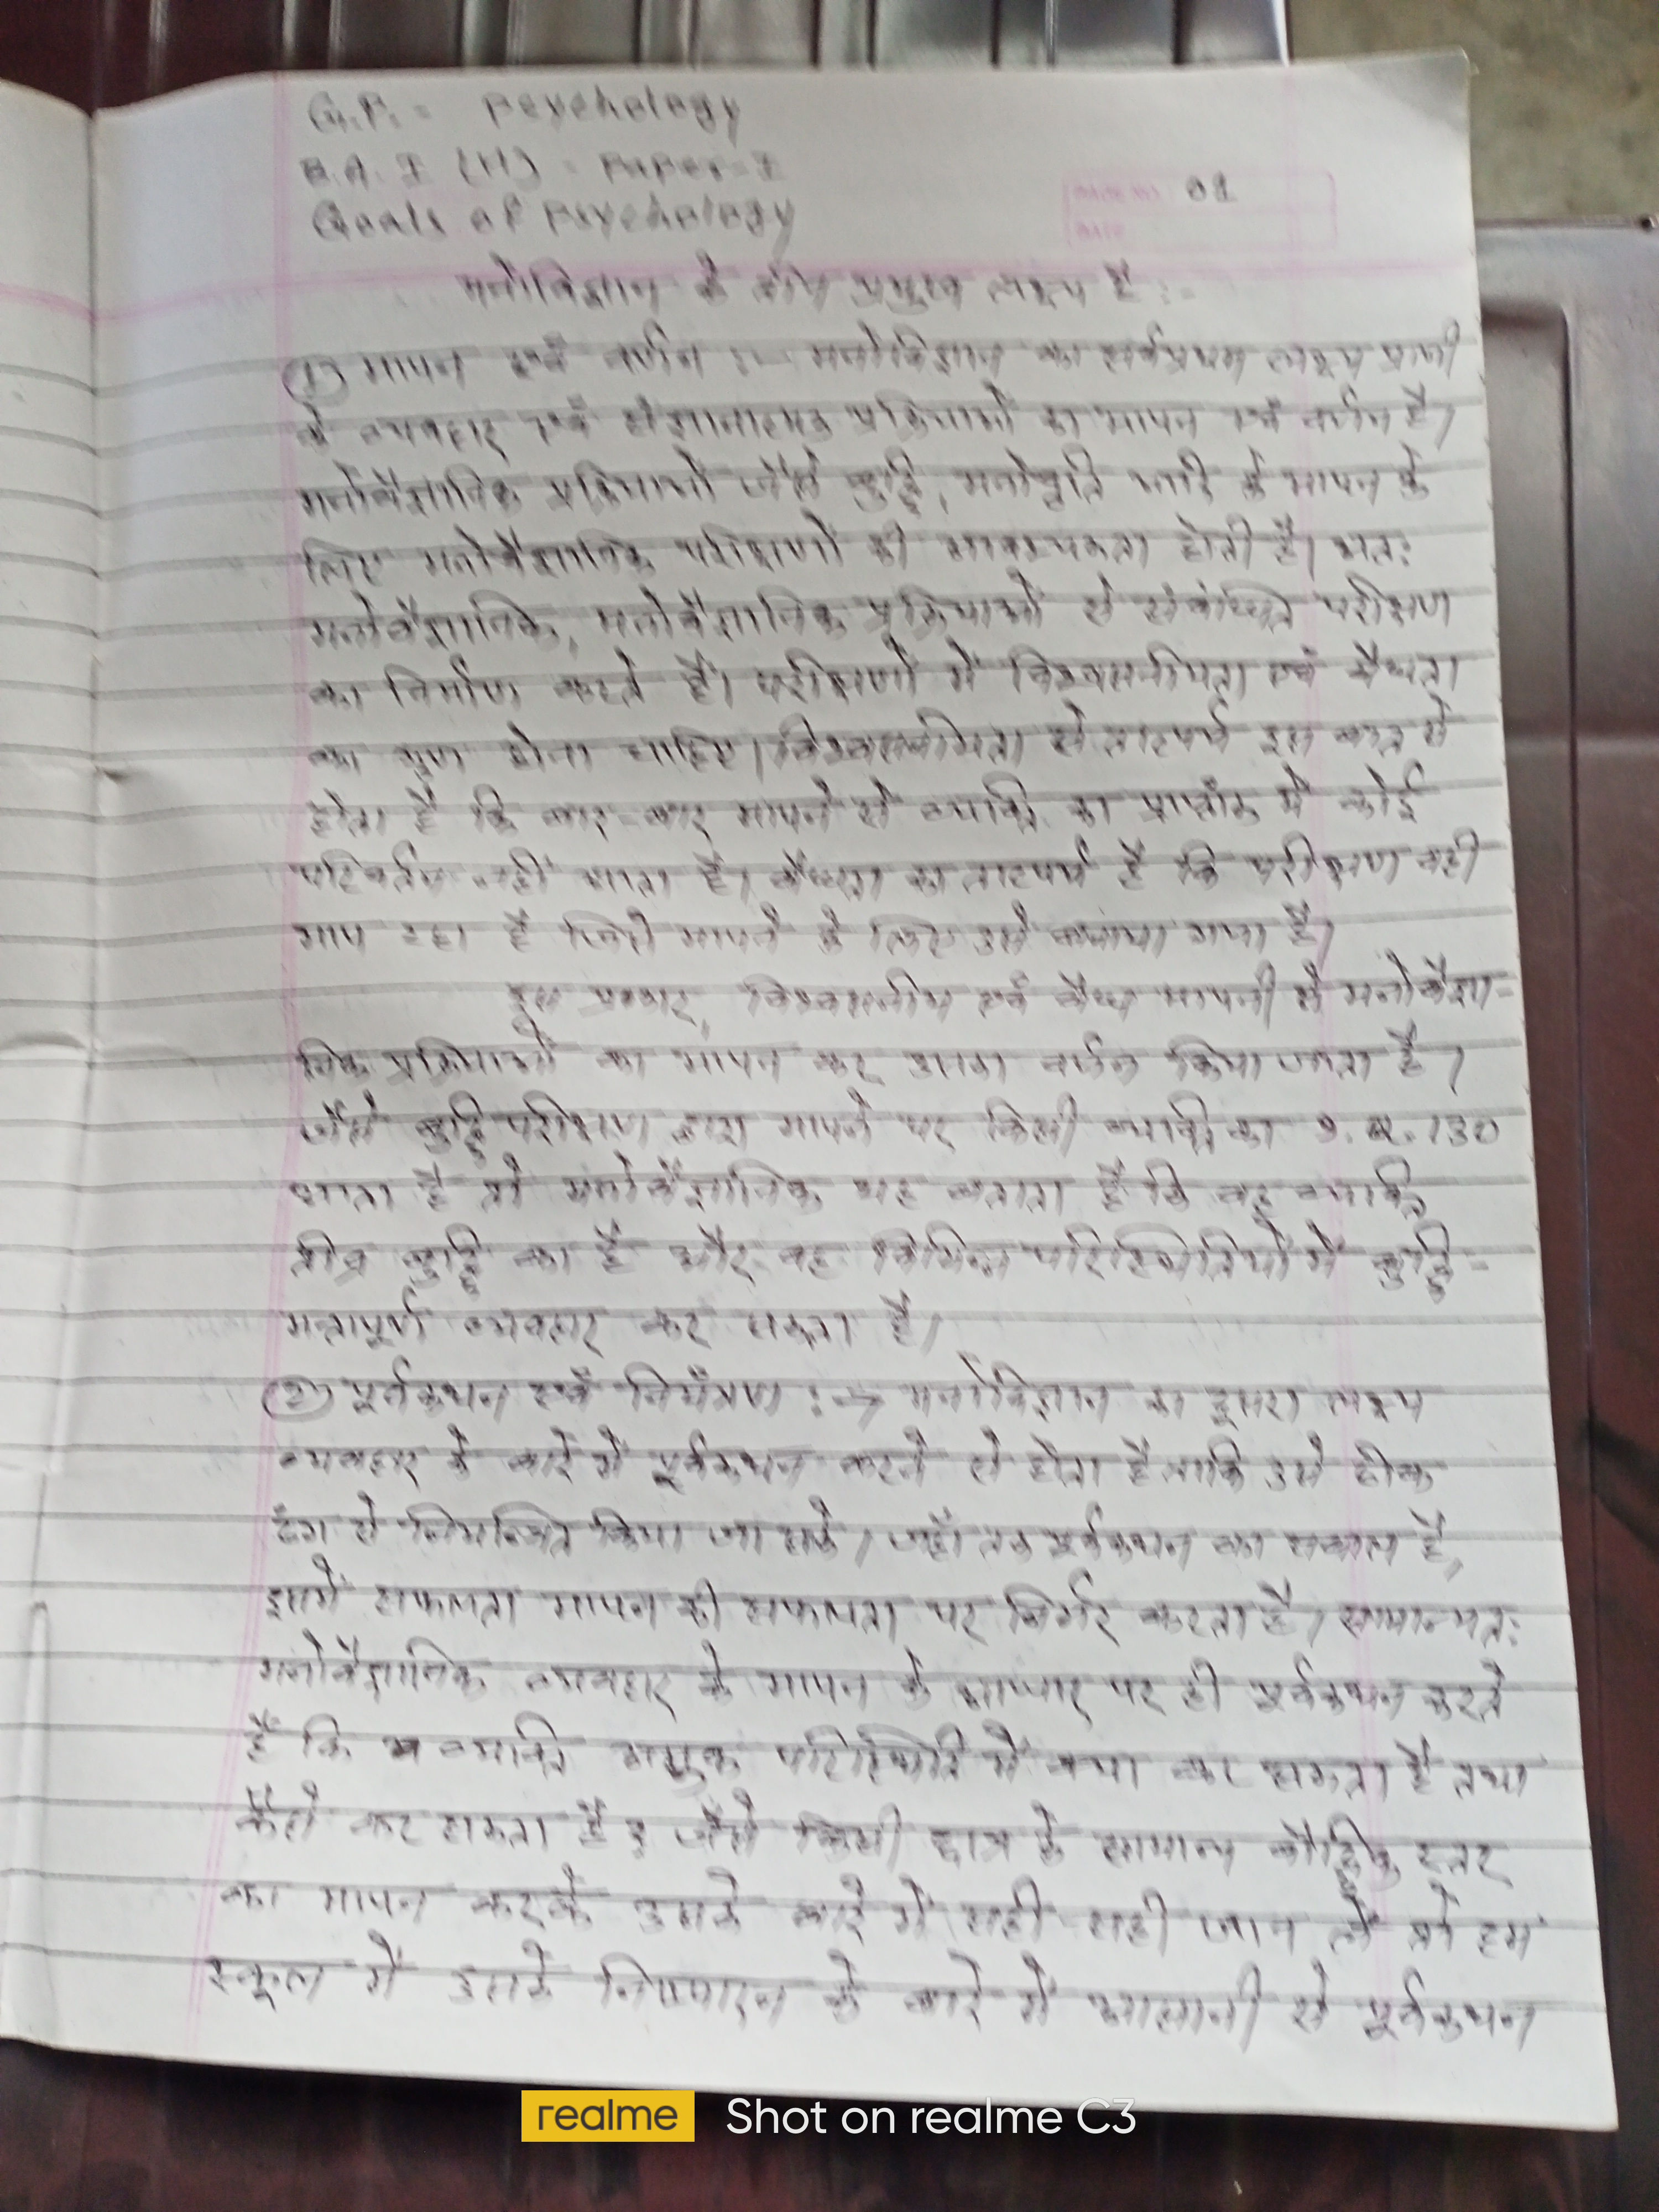 G.P. = Psychology
B.A. I (H) - Paper - I
Goals of Psychology
PAGE NO. 01
DATE
मनोविज्ञान के तीन प्रमुख लक्ष्य है :-
(1) मापन एवं वर्णन :- मनोविज्ञान का सर्वप्रथम लक्ष्य प्राणी
के व्यवहार एवं संज्ञानात्मक प्रक्रियाओं का मापन एवं वर्णन है।
मनोवैज्ञानिक प्रक्रियाओं जैसे बुद्धि, मनोवृति आदि के मापन के
लिए मनोवैज्ञानिक परीक्षणों की आवश्यकता होती है। अतः
मनोवैज्ञानिक, मनोवैज्ञानिक प्रक्रियाओं से संबंधित परीक्षण
का निर्माण करते हैं। परीक्षणों में विश्वसनीयता एवं वैधता
का गुण होना चाहिए। विश्वसनीयता से तात्पर्य इस बात से
होता है कि बार-बार मापने से व्यक्ति का प्राप्तांक में कोई
परिवर्तन नहीं आता है। वैधता का तात्पर्य है कि परीक्षण वही
माप रहा है जिसे मापने के लिए उसे बनाया गया है।
इस प्रकार, विश्वसनीय एवं वैध मापनी से मनोवैज्ञा-
निक प्रक्रियाओं का मापन कर उसका वर्णन किया जाता है।
जैसे बुद्धि परीक्षण द्वारा मापने पर किसी व्यक्ति का I.Q. 130
आता है तो मनोवैज्ञानिक यह बताता है कि वह व्यक्ति
तीव्र बुद्धि का है और वह विभिन्न परिस्थितियों में बुद्धि-
मत्तापूर्ण व्यवहार कर सकता है।
(2) पूर्वकथन एवं नियंत्रण :→ मनोविज्ञान का दूसरा लक्ष्य
व्यवहार के बारे में पूर्वकथन करने से होता है ताकि उसे ठीक
ढंग से नियन्त्रित किया जा सके। जहाँ तक पूर्वकथन का सवाल है,
इसमें सफलता मापन की सफलता पर निर्भर करता है। सामान्यतः
मनोवैज्ञानिक व्यवहार के मापन के आधार पर ही पूर्वकथन करते
है कि व्यक्ति अमुक परिस्थिति में क्या कर सकता है तथा
कैसे कर सकता है? जैसे किसी छात्र के सामान्य बौद्धिक स्तर
का मापन करके उसके बारे में सही सही जान लें तो हम
स्कूल में उसके निष्पादन के बारे में आसानी से पूर्वकथन
realme Shot on realme C3